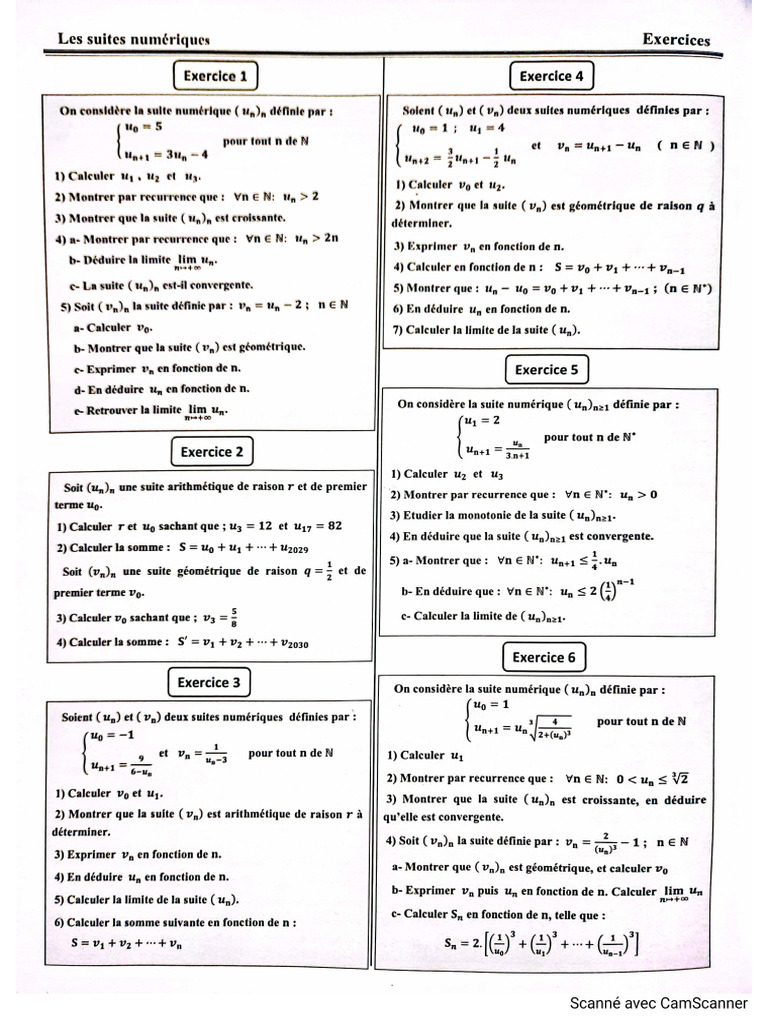 Les suites numériques
Exercices
Exercice 1
On considère la suite numérique ( uₙ)ₙ définie par :
{ u₀ = 5
uₙ₊₁ = 3uₙ − 4
pour tout n de ℕ
1) Calculer u₁ , u₂ et u₃.
2) Montrer par recurrence que : ∀n ∈ ℕ: uₙ > 2
3) Montrer que la suite ( uₙ)ₙ est croissante.
4) a- Montrer par recurrence que : ∀n ∈ ℕ: uₙ > 2n
b- Déduire la limite lim uₙ.
n↦+∞
c- La suite ( uₙ)ₙ est-il convergente.
5) Soit ( vₙ)ₙ la suite définie par : vₙ = uₙ − 2 ; n ∈ ℕ
a- Calculer v₀.
b- Montrer que la suite ( vₙ) est géométrique.
c- Exprimer vₙ en fonction de n.
d- En déduire uₙ en fonction de n.
e- Retrouver la limite lim uₙ.
n↦+∞
Exercice 2
Soit (uₙ)ₙ une suite arithmétique de raison r et de premier
terme u₀.
1) Calculer r et u₀ sachant que ; u₃ = 12 et u₁₇ = 82
2) Calculer la somme : S = u₀ + u₁ + ⋯ + u₂₀₂₉
Soit (vₙ)ₙ une suite géométrique de raison q = 1/2 et de
premier terme v₀.
3) Calculer v₀ sachant que ; v₃ = 5/8
4) Calculer la somme : S′ = v₁ + v₂ + ⋯ + v₂₀₃₀
Exercice 3
Soient ( uₙ) et ( vₙ) deux suites numériques définies par :
{ u₀ = −1
uₙ₊₁ = 9/(6−uₙ)
et vₙ = 1/(uₙ−3) pour tout n de ℕ
1) Calculer v₀ et u₁.
2) Montrer que la suite ( vₙ) est arithmétique de raison r à
déterminer.
3) Exprimer vₙ en fonction de n.
4) En déduire uₙ en fonction de n.
5) Calculer la limite de la suite ( uₙ).
6) Calculer la somme suivante en fonction de n :
S = v₁ + v₂ + ⋯ + vₙ
Exercice 4
Soient ( uₙ) et ( vₙ) deux suites numériques définies par :
{ u₀ = 1 ; u₁ = 4
uₙ₊₂ = 3/2 uₙ₊₁ − 1/2 uₙ
et vₙ = uₙ₊₁ − uₙ ( n ∈ ℕ )
1) Calculer v₀ et u₂.
2) Montrer que la suite ( vₙ) est géométrique de raison q à
déterminer.
3) Exprimer vₙ en fonction de n.
4) Calculer en fonction de n : S = v₀ + v₁ + ⋯ + vₙ₋₁
5) Montrer que : uₙ − u₀ = v₀ + v₁ + ⋯ + vₙ₋₁ ; (n ∈ ℕ*)
6) En déduire uₙ en fonction de n.
7) Calculer la limite de la suite ( uₙ).
Exercice 5
On considère la suite numérique ( uₙ)ₙ≥₁ définie par :
{ u₁ = 2
uₙ₊₁ = uₙ/(3.n+1)
pour tout n de ℕ*
1) Calculer u₂ et u₃
2) Montrer par recurrence que : ∀n ∈ ℕ*: uₙ > 0
3) Etudier la monotonie de la suite ( uₙ)ₙ≥₁.
4) En déduire que la suite ( uₙ)ₙ≥₁ est convergente.
5) a- Montrer que : ∀n ∈ ℕ*: uₙ₊₁ ≤ 1/4 . uₙ
b- En déduire que : ∀n ∈ ℕ*: uₙ ≤ 2 (1/4)ⁿ⁻¹
c- Calculer la limite de ( uₙ)ₙ≥₁.
Exercice 6
On considère la suite numérique ( uₙ)ₙ définie par :
{ u₀ = 1
uₙ₊₁ = uₙ ∛(4/(2+(uₙ)³))
pour tout n de ℕ
1) Calculer u₁
2) Montrer par recurrence que : ∀n ∈ ℕ: 0 < uₙ ≤ ∛2
3) Montrer que la suite ( uₙ)ₙ est croissante, en déduire
qu'elle est convergente.
4) Soit ( vₙ)ₙ la suite définie par : vₙ = 2/(uₙ)³ − 1 ; n ∈ ℕ
a- Montrer que ( vₙ)ₙ est géométrique, et calculer v₀
b- Exprimer vₙ puis uₙ en fonction de n. Calculer lim uₙ
n↦+∞
c- Calculer Sₙ en fonction de n, telle que :
Sₙ = 2. [(1/u₀)³ + (1/u₁)³ + ⋯ + (1/uₙ₋₁)³]
Scanné avec CamScanner